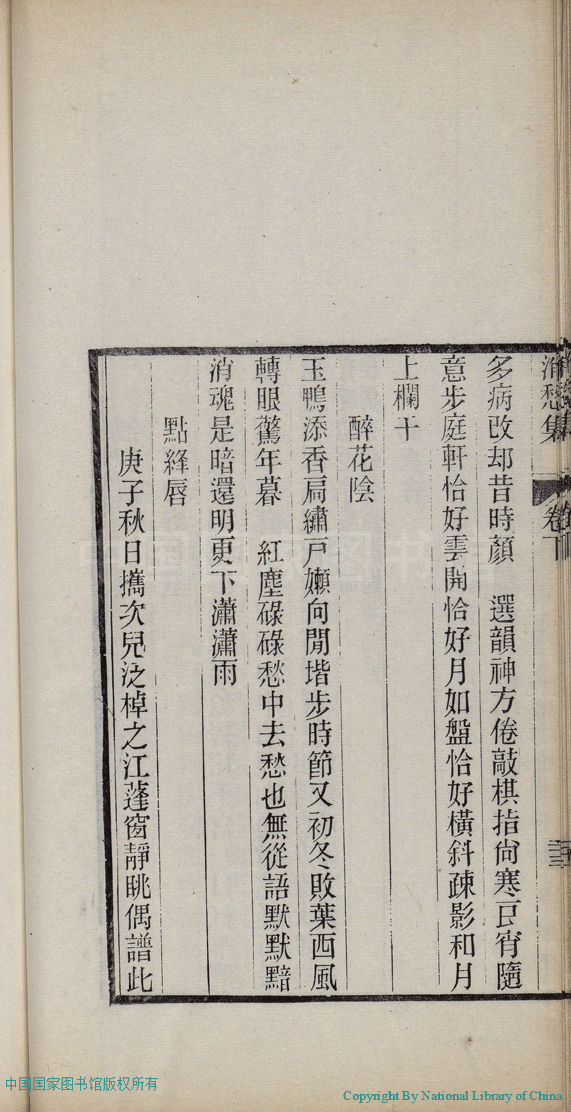 消愁集 卷下
多病改却昔時顏　選韻神方倦敲棋指尙寒良宵隨
意步庭軒恰好雲開恰好月如盤恰好橫斜疎影和月
上欄干
醉花陰
玉鴨添香扃繡戸嬾向閒堦步時節又初冬敗葉西風
轉眼驚年暮　紅塵碌碌愁中去愁也無從語默默黯
消魂是暗還明更下瀟瀟雨
點絳唇
庚子秋日攜次兒泛棹之江蓬窗靜眺偶譜此
中国国家图书馆版权所有
Copyright By National Library of China